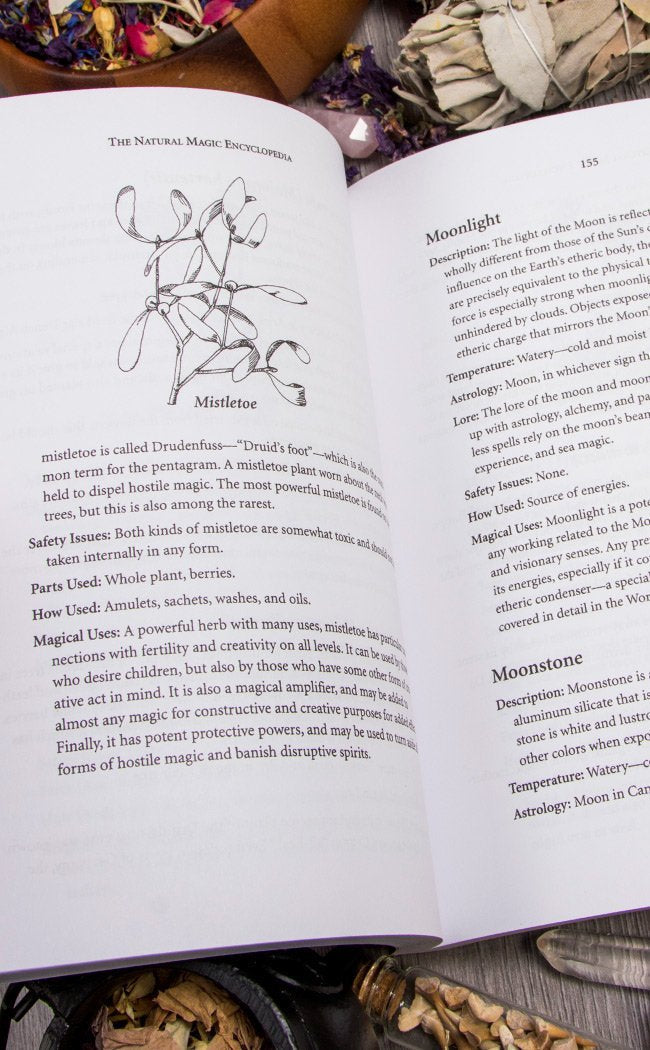 THE NATURAL MAGIC ENCYCLOPEDIA
Mistletoe
mistletoe is called Drudenfuss—“Druid’s foot”—which is also the
mon term for the pentagram. A mistletoe plant worn about the
held to dispel hostile magic. The most powerful mistletoe is found
trees, but this is also among the rarest.
Safety Issues: Both kinds of mistletoe are somewhat toxic and should
taken internally in any form.
Parts Used: Whole plant, berries.
How Used: Amulets, sachets, washes, and oils.
Magical Uses: A powerful herb with many uses, mistletoe has particular
nections with fertility and creativity on all levels. It can be used by
who desire children, but also by those who have some other form of
ative act in mind. It is also a magical amplifier, and may be added to
almost any magic for constructive and creative purposes for added
Finally, it has potent protective powers, and may be used to turn aside
forms of hostile magic and banish disruptive spirits.
155
Moonlight
Description: The light of the Moon is reflec
wholly different from those of the Sun’s
influence on the Earth’s etheric body, the
are precisely equivalent to the physical
force is especially strong when moonlig
unhindered by clouds. Objects expose
etheric charge that mirrors the Moon’
Temperature: Watery—cold and moist
Astrology: Moon, in whichever sign th
Lore: The lore of the moon and moon
up with astrology, alchemy, and pa
less spells rely on the moon’s bea
experience, and sea magic.
Safety Issues: None.
How Used: Source of energies.
Magical Uses: Moonlight is a pote
any working related to the Mo
and visionary senses. Any pre
its energies, especially if it co
etheric condenser—a special
covered in detail in the Wor
Moonstone
Description: Moonstone is a
aluminum silicate that is
stone is white and lustro
other colors when expo
Temperature: Watery—co
Astrology: Moon in Can